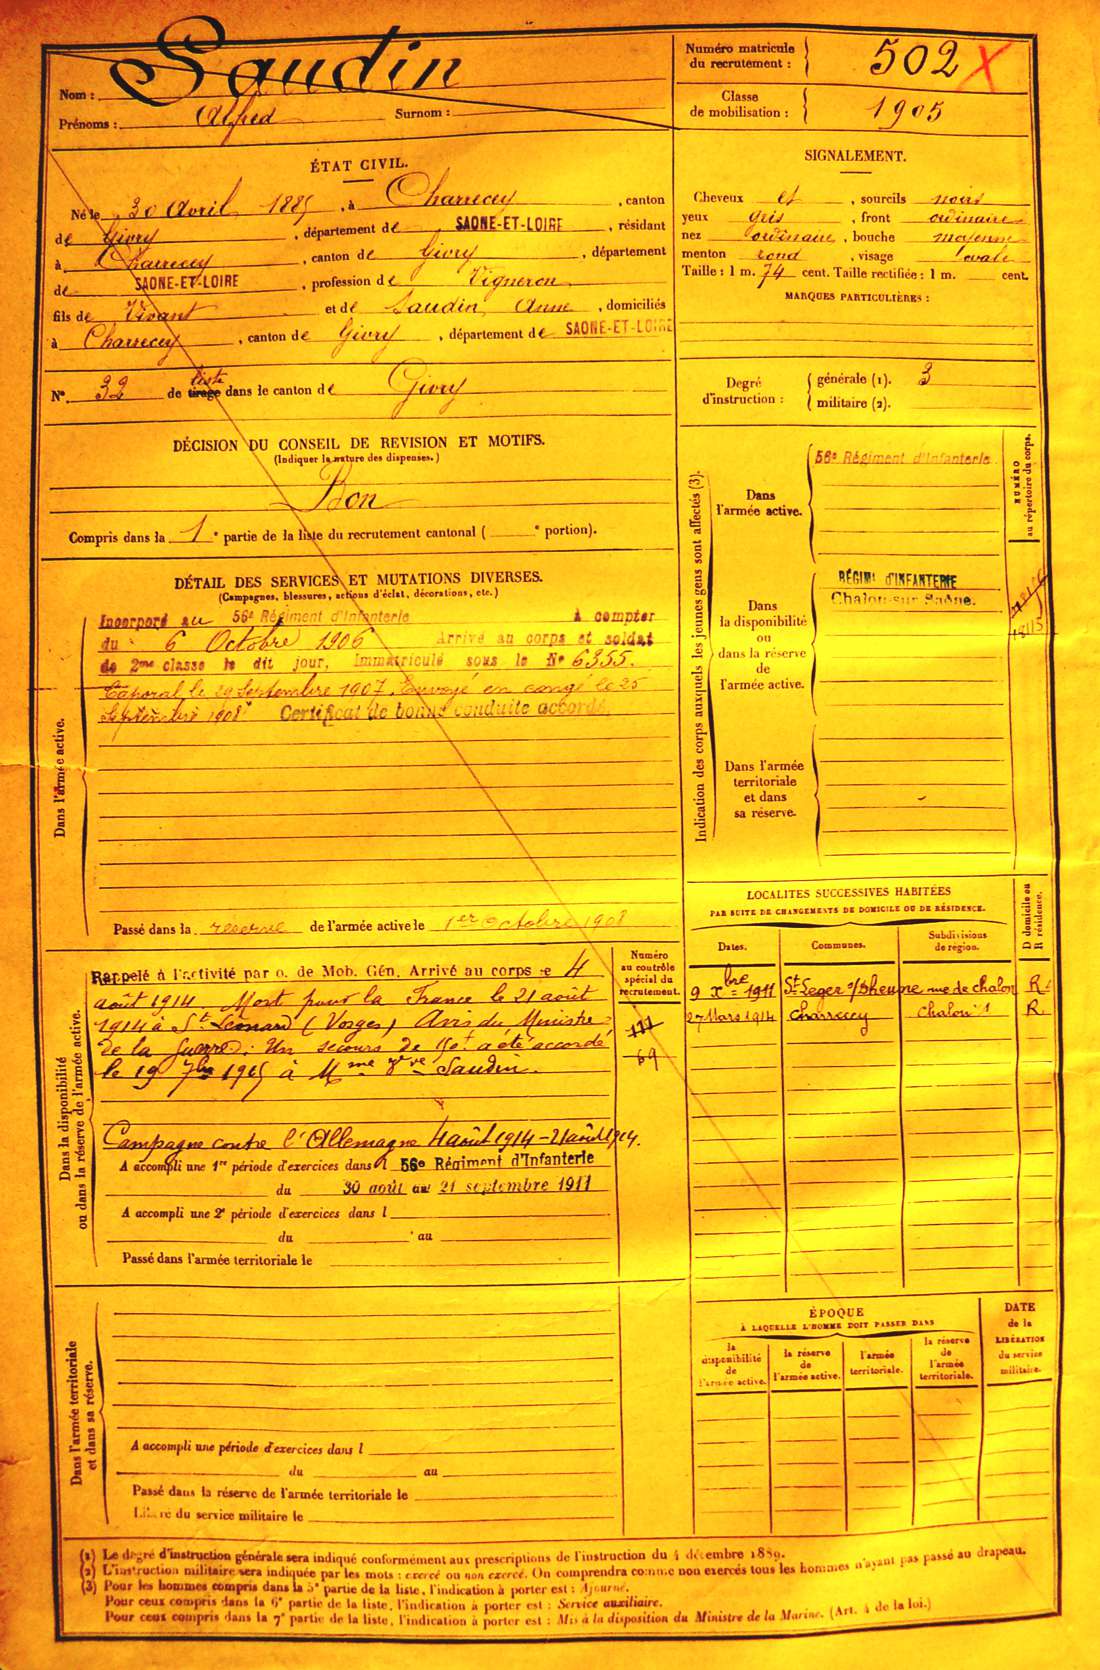 Nom : Saudin
Prénoms : Alfred Surnom :
Numéro matricule du recrutement : 502 X
Classe de mobilisation : 1905
ÉTAT CIVIL.
Né le 30 Avril 1885, à Charrecey, canton
de Givry, département de SAONE-ET-LOIRE, résidant
à Charrecey, canton de Givry, département
de SAONE-ET-LOIRE, profession de Vigneron
fils de Vivant et de Saudin Anne, domiciliés
à Charrecey, canton de Givry, département de SAONE-ET-LOIRE
N° 32 de tirage liste dans le canton de Givry
SIGNALEMENT.
Cheveux et, sourcils noirs
yeux gris, front ordinaire
nez ordinaire, bouche moyenne
menton rond, visage ovale
Taille : 1 m. 74 cent. Taille rectifiée : 1 m. cent.
MARQUES PARTICULIÈRES :
Degré d'instruction : générale (1). 3
militaire (2).
DÉCISION DU CONSEIL DE REVISION ET MOTIFS.
(Indiquer la nature des dispenses.)
Bon
Compris dans la 1e partie de la liste du recrutement cantonal ( e portion).
DÉTAIL DES SERVICES ET MUTATIONS DIVERSES.
(Campagnes, blessures, actions d'éclat, décorations, etc.)
Dans l'armée active.
Incorporé au 56e Régiment d'Infanterie à compter
du 6 Octobre 1906 Arrivé au corps et soldat
de 2me classe le dit jour, Immatriculé sous le N° 6355.
Caporal le 29 Septembre 1907. Envoyé en congé le 25
Septembre 1908. Certificat de bonne conduite accordé.
Passé dans la réserve de l'armée active le 1er Octobre 1908
Indication des corps auxquels les jeunes gens sont affectés (3).
NUMÉRO au répertoire du corps.
Dans l'armée active.
56e Régiment d'Infanterie
Dans la disponibilité ou dans la réserve de l'armée active.
RÉGIMt D'INFANTERIE
Chalon-sur-Saône.
Dans l'armée territoriale et dans sa réserve.
LOCALITÉS SUCCESSIVES HABITÉES
PAR SUITE DE CHANGEMENTS DE DOMICILE OU DE RÉSIDENCE.
Dates. Communes. Subdivisions de région. D domicile ou R résidence.
9 Xbre 1911 St Leger s/ Dheune rue de Chalon R.
27 Mars 1914 Charrecey Chalon s/ R.
Dans la disponibilité ou dans la réserve de l'armée active.
Numéro au contrôle spécial du recrutement.
111
69
Rappelé à l'activité par o. de Mob. Gén. Arrivé au corps le 4
août 1914 Mort pour la France le 21 août
1914 à St Léonard (Vosges) Avis du Ministre
de la Guerre. Un secours de 150f a été accordé
le 19 7bre 1915 à Mme Vve Saudin.
Campagne contre l'Allemagne 4 août 1914 - 21 août 1914.
A accompli une 1re période d'exercices dans l 56e Régiment d'Infanterie
du 30 août au 21 septembre 1911
A accompli une 2e période d'exercices dans l
du au
Passé dans l'armée territoriale le
Dans l'armée territoriale et dans sa réserve.
A accompli une période d'exercices dans l
du au
Passé dans la réserve de l'armée territoriale le
Libéré du service militaire le
ÉPOQUE
À LAQUELLE L'HOMME DOIT PASSER DANS
la disponibilité de l'armée active.
la réserve de l'armée active.
l'armée territoriale.
la réserve de l'armée territoriale.
DATE de la LIBÉRATION du service militaire.
(1) Le degré d'instruction générale sera indiqué conformément aux prescriptions de l'instruction du 4 décembre 1889.
(2) L'instruction militaire sera indiquée par les mots : exercé ou non exercé. On comprendra comme non exercés tous les hommes n'ayant pas passé au drapeau.
(3) Pour les hommes compris dans la 5e partie de la liste, l'indication à porter est : Ajourné.
Pour ceux compris dans la 6e partie de la liste, l'indication à porter est : Service auxiliaire.
Pour ceux compris dans la 7e partie de la liste, l'indication à porter est : Mis à la disposition du Ministre de la Marine. (Art. 4 de la loi.)